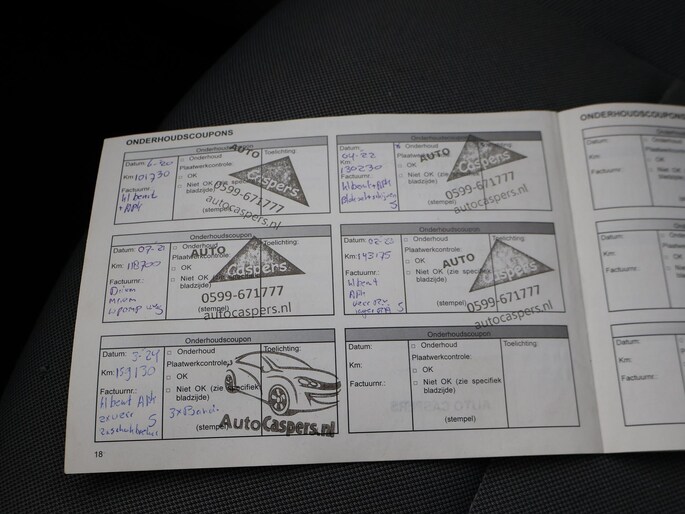 ONDERHOUDSCOUPONS
Onderhoudscoupon
Datum: 6-20
Km: 101730
Factuurnr.:
kl beurt
+ APK
□ Onderhoud
Plaatwerkcontrole:
□ OK
□ Niet OK (zie specifiek
bladzijde)
(stempel)
Toelichting:
AUTO
Caspers
0599-671777
autocaspers.nl
Onderhoudscoupon
Datum: 04-22
Km: 130230
Factuurnr.:
kl beurt + APK
S
□ Onderhoud
Plaatwerkcontrole:
□ OK
□ Niet OK (zie specifiek
bladzijde)
(stempel)
Toelichting:
AUTO
Caspers
0599-671777
autocaspers.nl
Onderhoudscoupon
Datum: 07-21
Km: 118700
Factuurnr.:
S
□ Onderhoud
Plaatwerkcontrole:
□ OK
□ Niet OK (zie specifiek
bladzijde)
(stempel)
Toelichting:
AUTO
Caspers
0599-671777
autocaspers.nl
Onderhoudscoupon
Datum: 02-23
Km: 143175
Factuurnr.:
kl beurt
APK
S
□ Onderhoud
Plaatwerkcontrole:
□ OK
□ Niet OK (zie specifiek
bladzijde)
(stempel)
Toelichting:
AUTO
Caspers
0599-671777
autocaspers.nl
Onderhoudscoupon
Datum: 3-24
Km: 159130
Factuurnr.:
kl beurt APK
S
□ Onderhoud
Plaatwerkcontrole:
□ OK
□ Niet OK (zie specifiek
bladzijde)
3x
(stempel)
Toelichting:
AutoCaspers.nl
Onderhoudscoupon
Datum:
Km:
Factuurnr.:
□ Onderhoud
Plaatwerkcontrole:
□ OK
□ Niet OK (zie specifiek
bladzijde)
(stempel)
Toelichting:
18
ONDERHOUDSCOUPONS
Datum:
Km:
Factuurnr.:
Datum:
Km:
Factuurnr.:
Datum:
Km:
Factuurnr.: